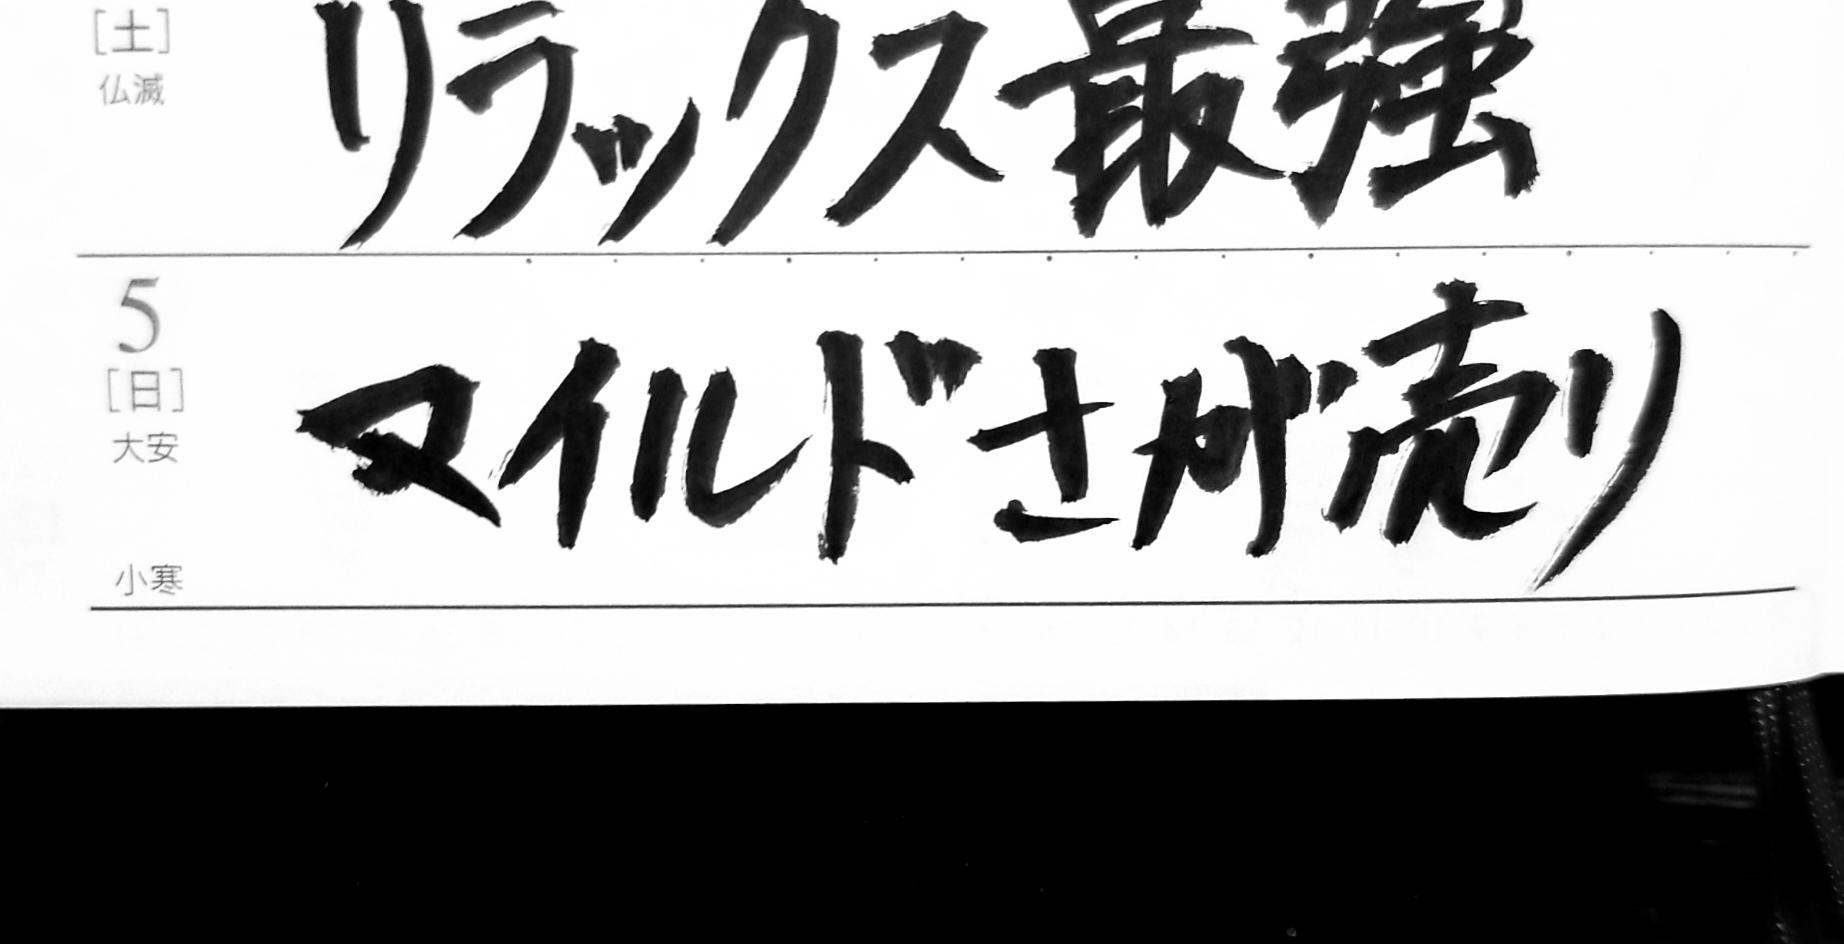 [土] リラックス最強
仏滅
5
[日] マイルドさが売り
大安
小寒